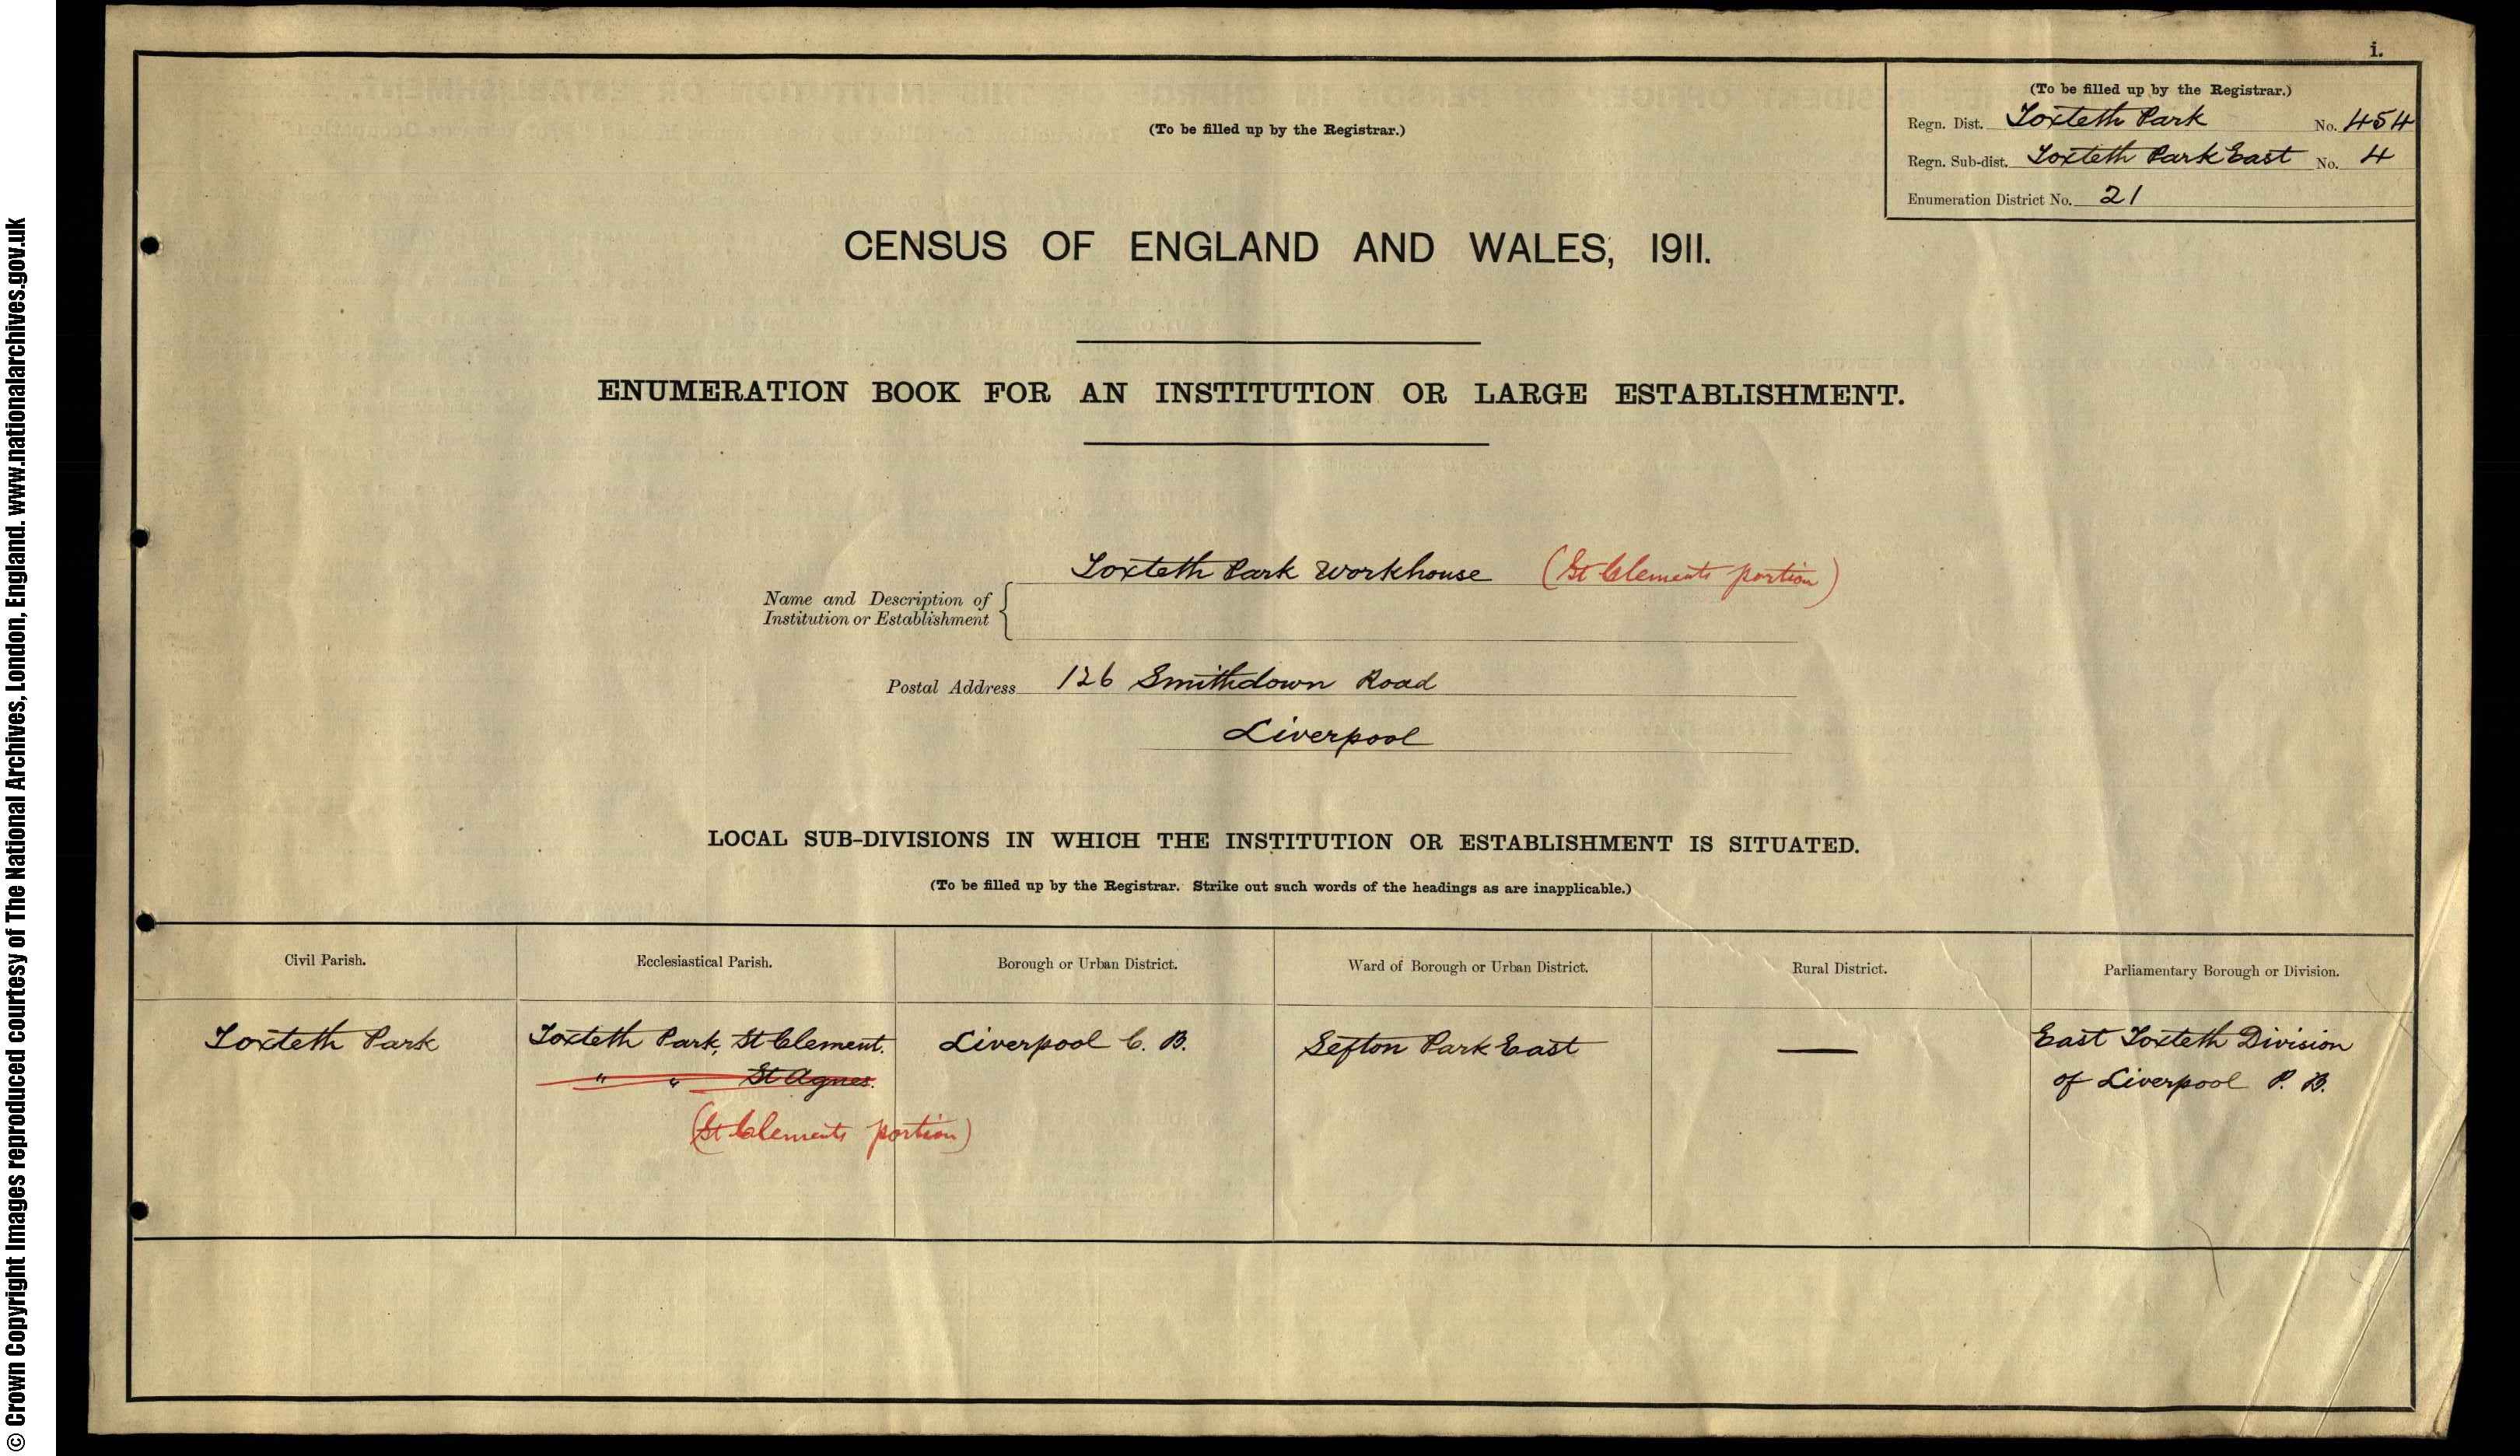 i.
(To be filled up by the Registrar.)
Regn. Dist. Toxteth Park No. 454
Regn. Sub-dist. Toxteth Park East No. 4
Enumeration District No. 21
(To be filled up by the Registrar.)
CENSUS OF ENGLAND AND WALES, 1911.
ENUMERATION BOOK FOR AN INSTITUTION OR LARGE ESTABLISHMENT.
Toxteth Park Workhouse (St Clements portion)
Name and Description of
Institution or Establishment
Postal Address 126 Smithdown Road
Liverpool
LOCAL SUB-DIVISIONS IN WHICH THE INSTITUTION OR ESTABLISHMENT IS SITUATED.
(To be filled up by the Registrar. Strike out such words of the headings as are inapplicable.)
Civil Parish. Ecclesiastical Parish. Borough or Urban District. Ward of Borough or Urban District. Rural District. Parliamentary Borough or Division.
Toxteth Park Toxteth Park, St Clement. Liverpool C. B. Sefton Park East — East Toxteth Division
" " St Agnes. of Liverpool P. B.
(St Clements portion)
© Crown Copyright Images reproduced courtesy of The National Archives, London, England. www.nationalarchives.gov.uk